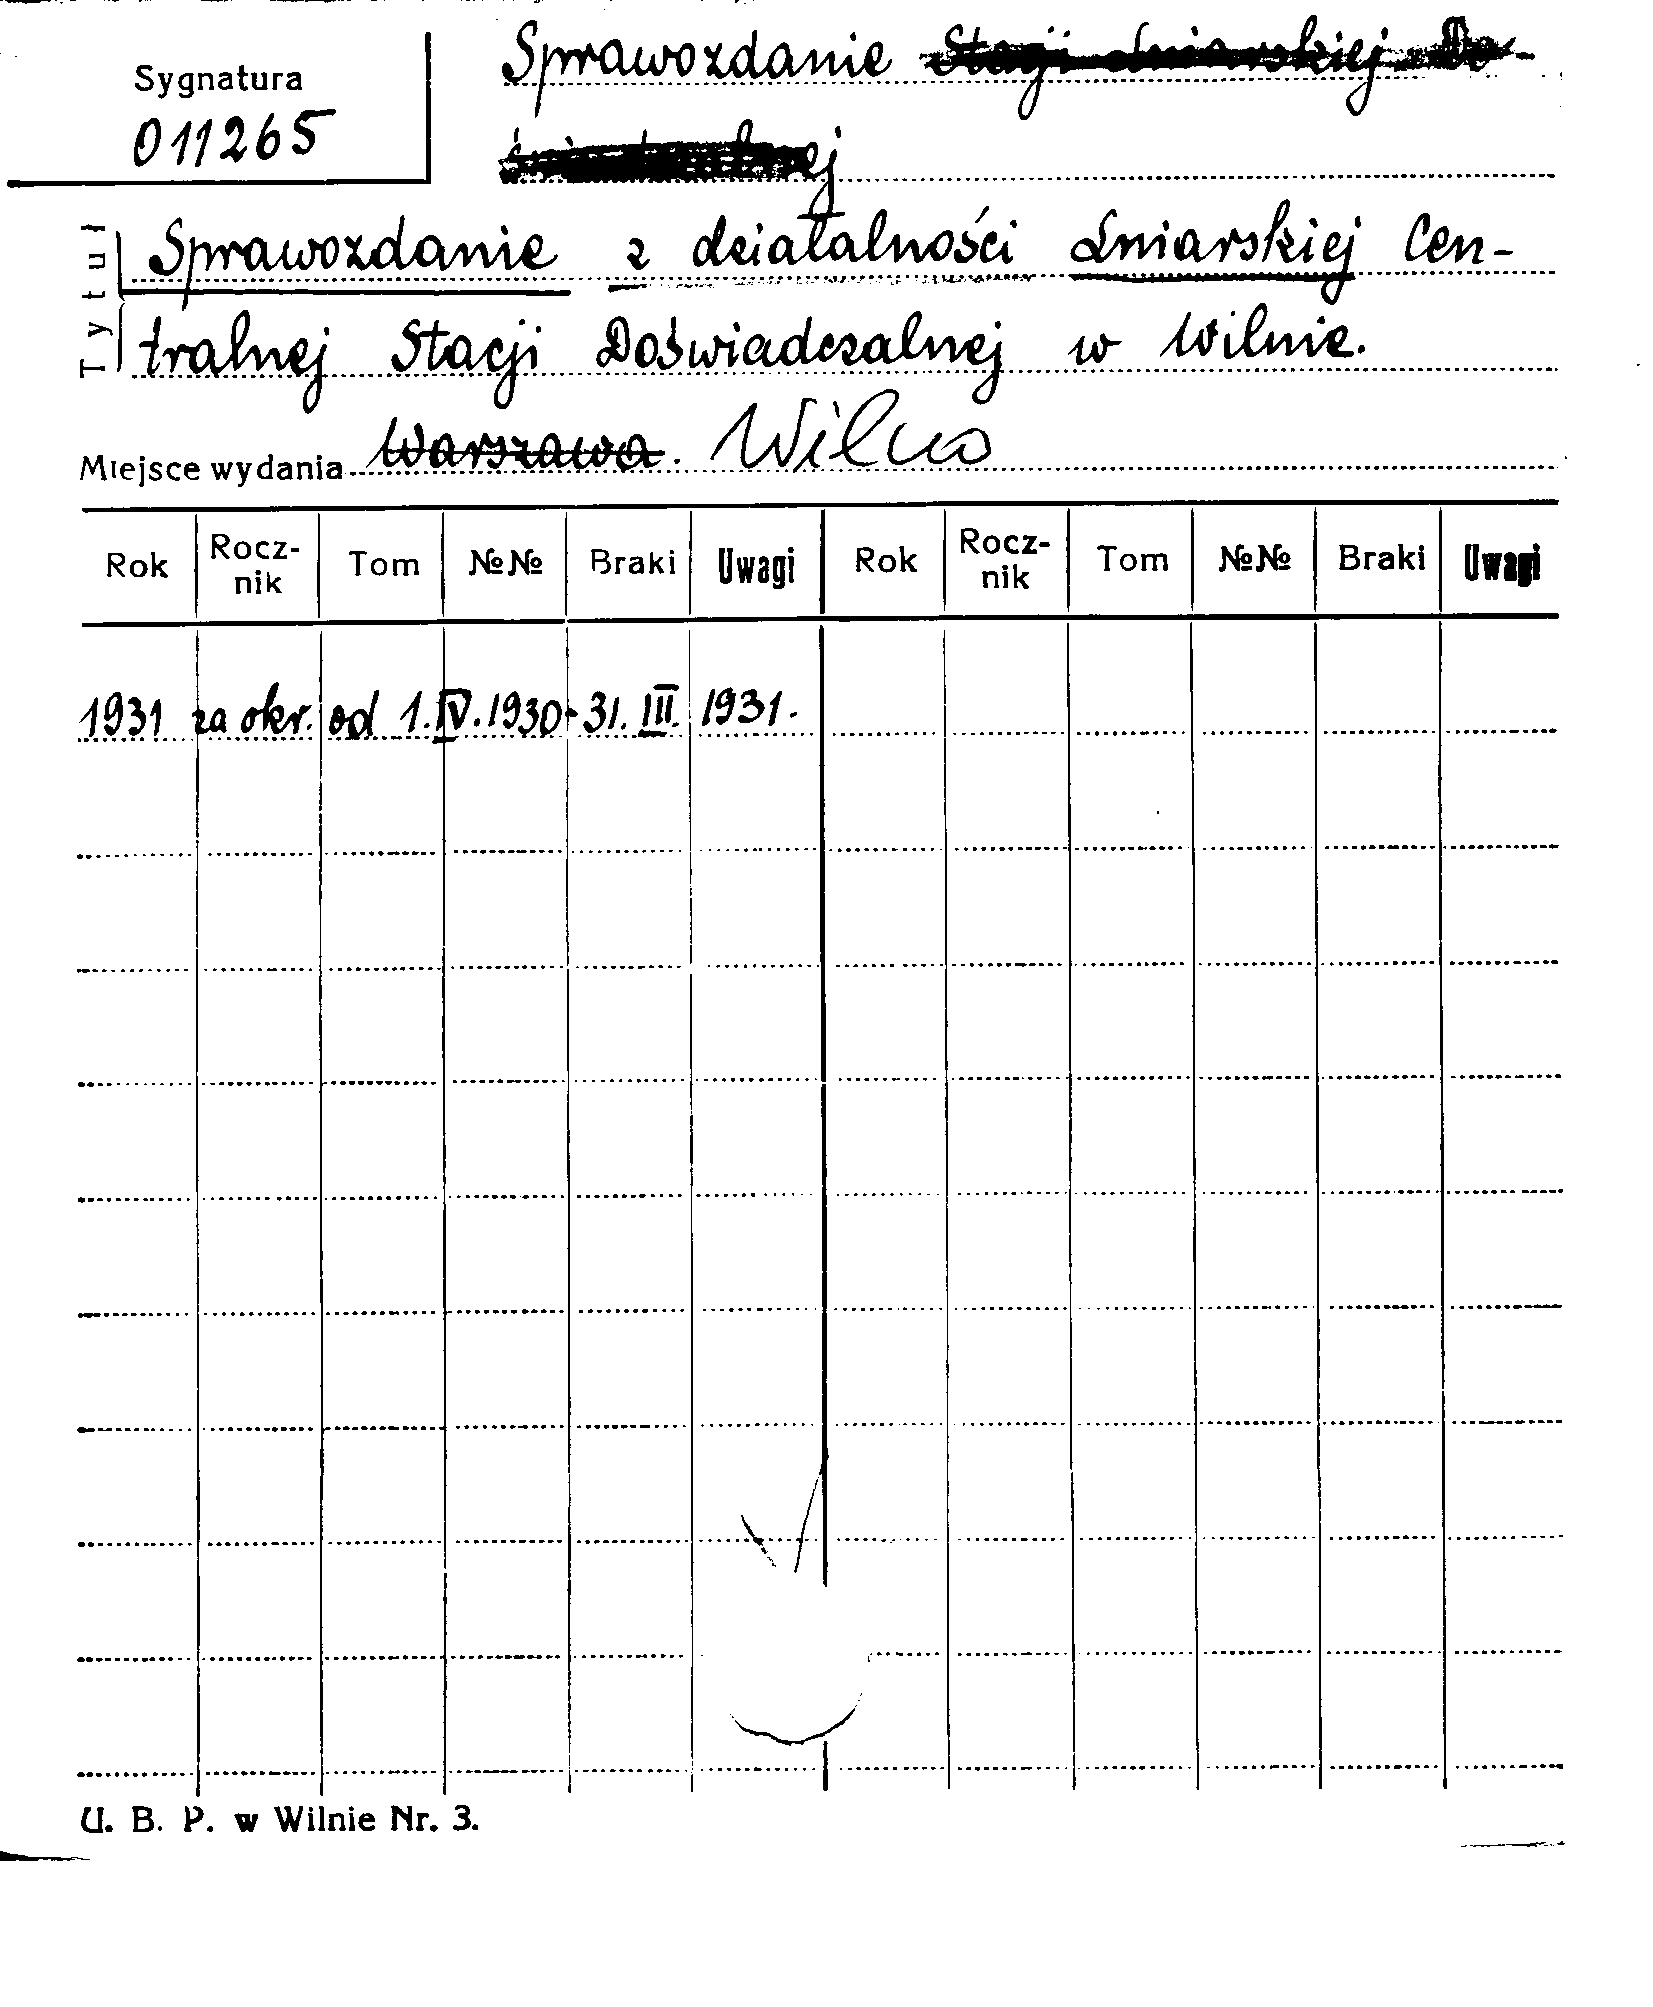 Sprawozdanie Stacji Lniarskiej Do-
Sygnatura
011265
Tytuł
Sprawozdanie z działalności Lniarskiej Cen-
tralnej Stacji Doświadczalnej w Wilnie.
Miejsce wydania Warszawa. Wilno
Rok Rocz-nik Tom №№ Braki Uwagi Rok Rocz-nik Tom №№ Braki Uwagi
1931 za okr. od 1.IV.1930-31.III.1931.
U. B. P. w Wilnie Nr. 3.